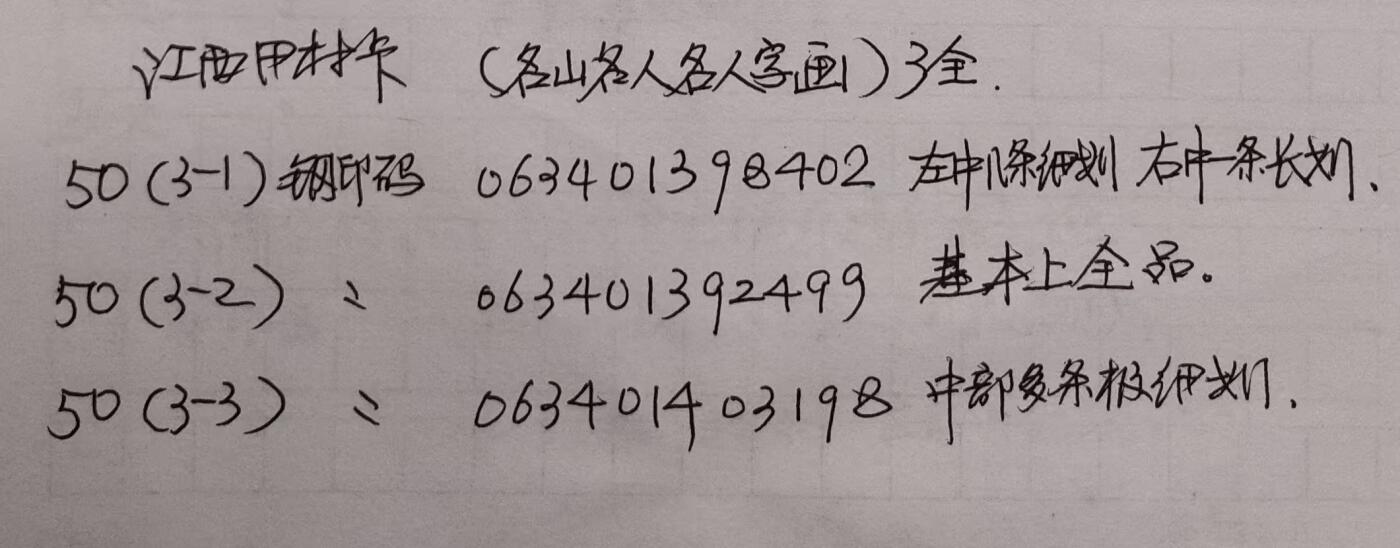 江西田村卡 (名山名人名人字画) 3全.
50 (3-1) 钢印码 063401398402 左中几条细划 右中一条长划、
50 (3-2) 〃 063401392499 基本上全品。
50 (3-3) 〃 063401403198 中部多条极细划.